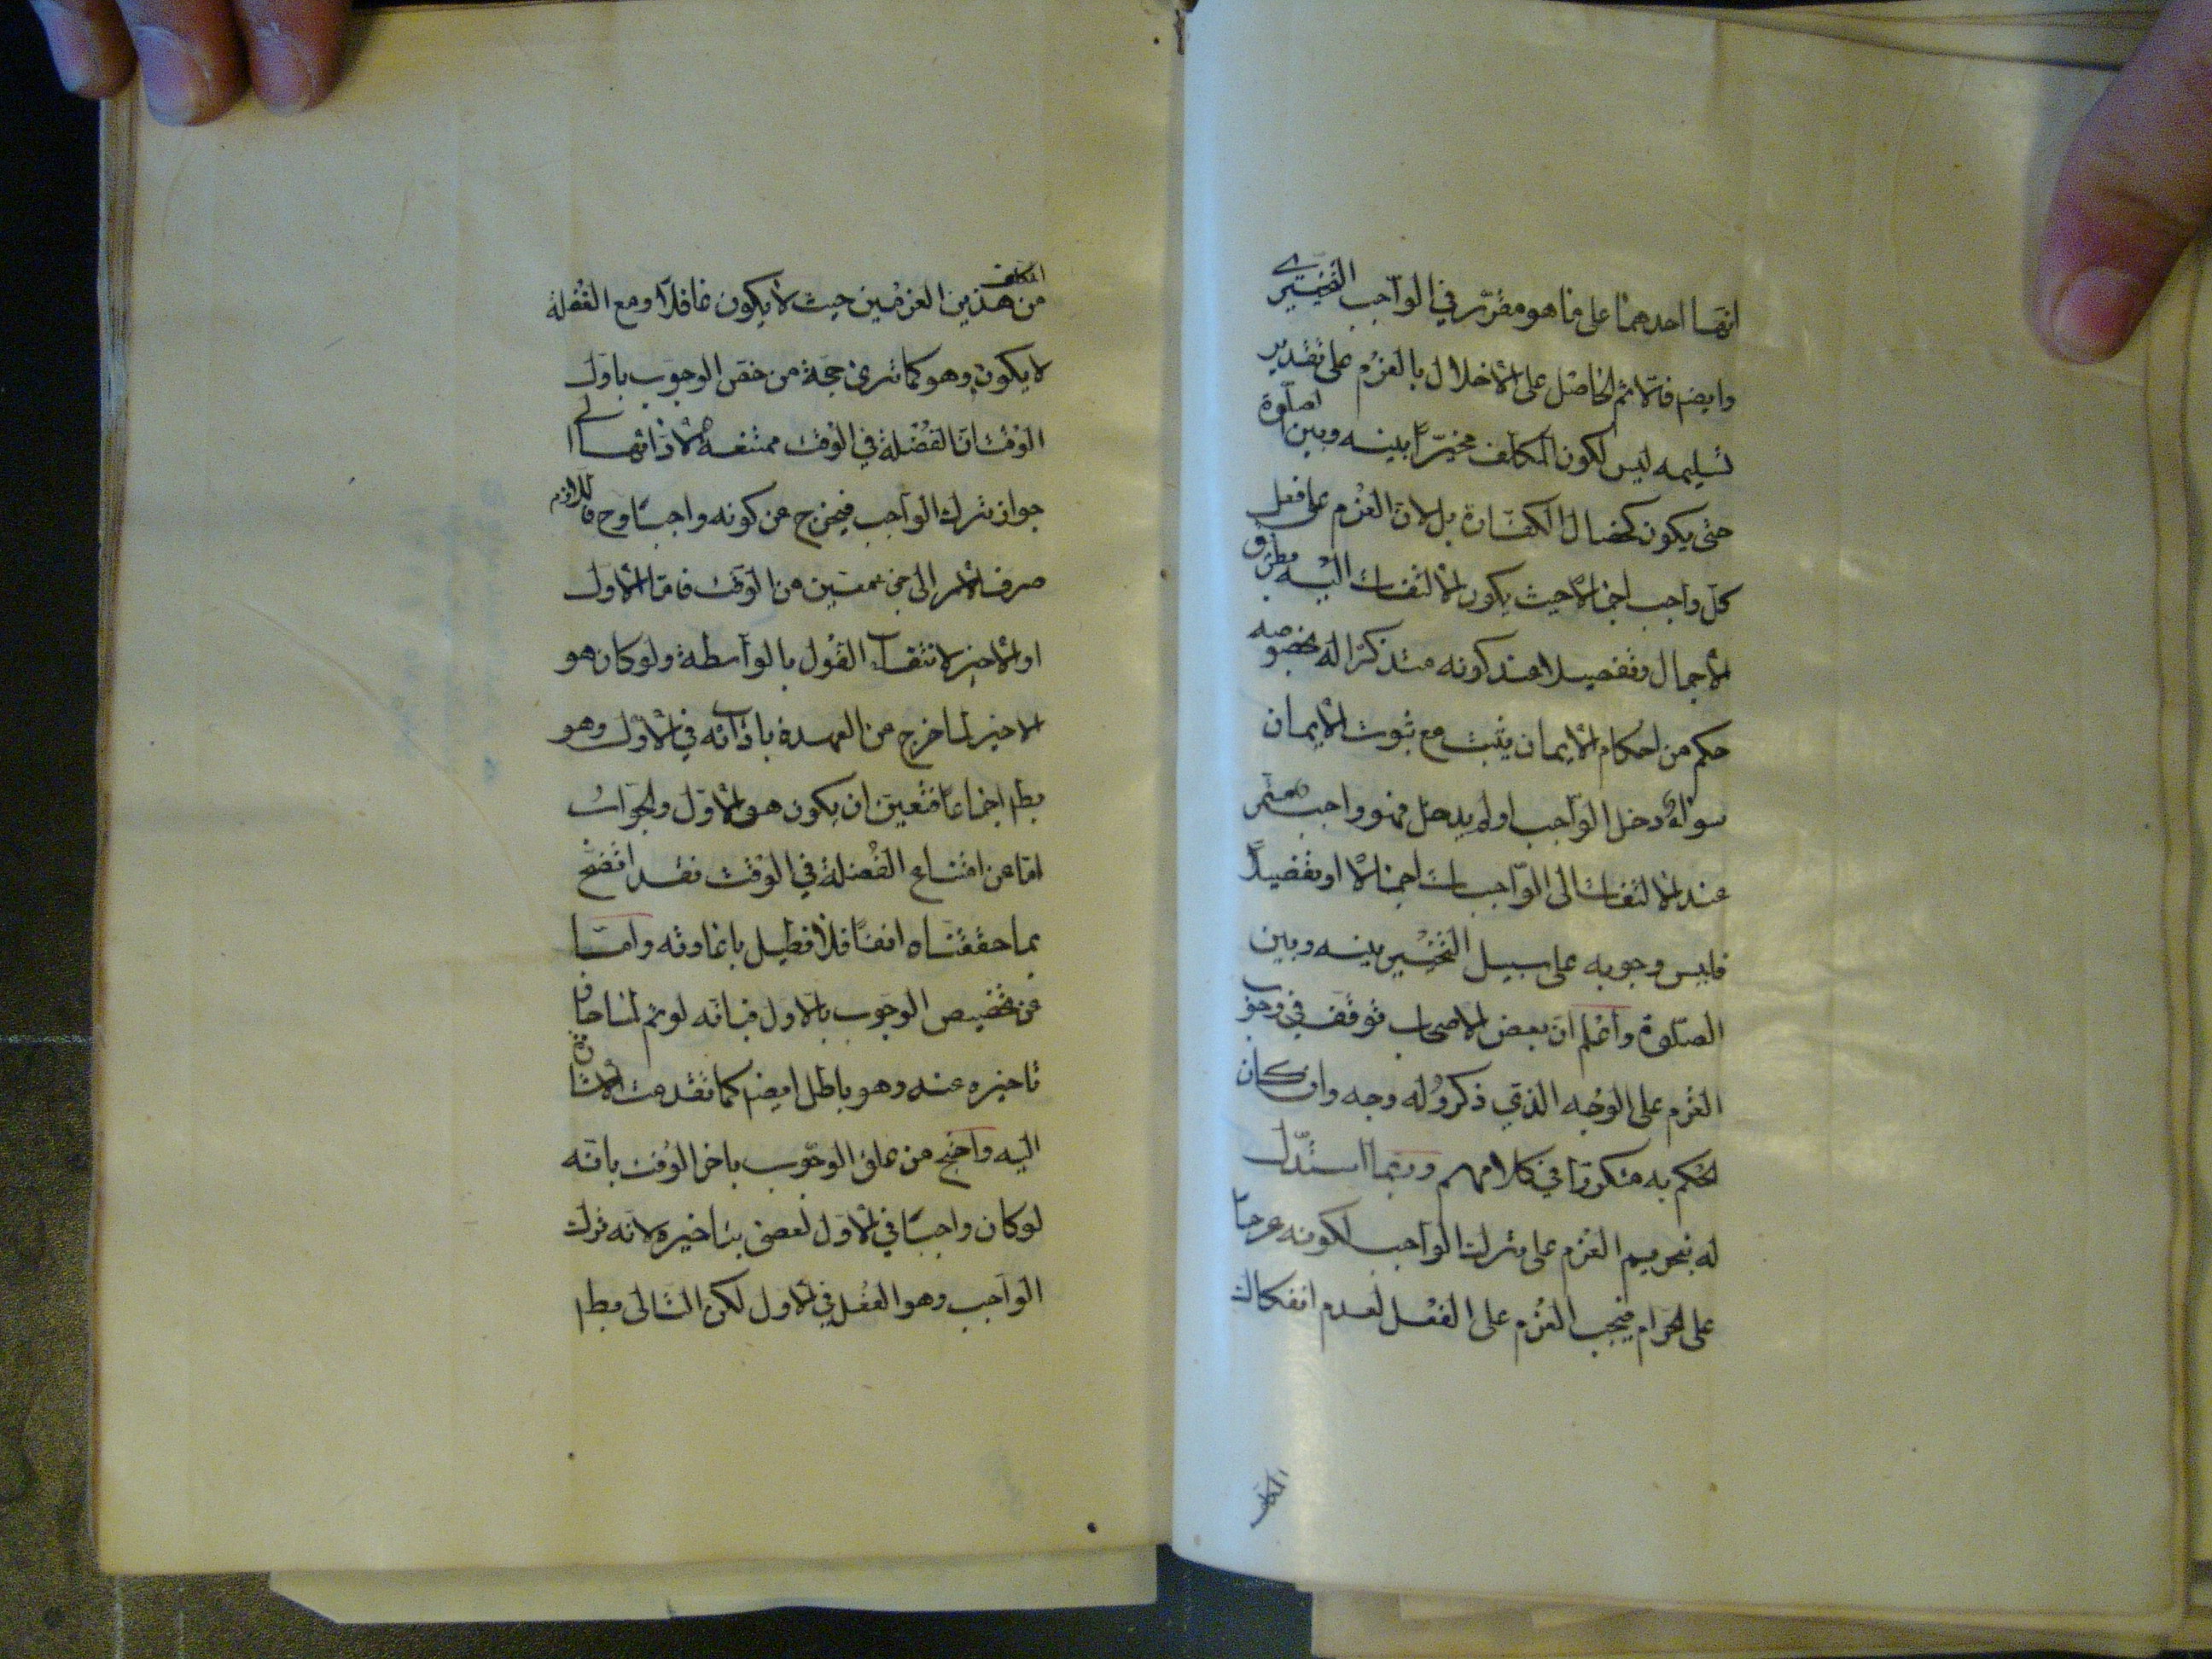 انهما احدهما على ما هو مقرر في الواجب التخييري
وايضا فالاثم الحاصل على الاخلال بالعزم على تقدير
تسليمه ليس لكون المكلف مخيرا بينه وبين الصلوة
حتى يكون كخصال الكفارة بل لان العزم على فعل
كل واجب اجمالا حيث يكون الالتفات اليه بطريق
الاجمال وتفصيلا عند كونه متذكرا له بخصوصه
حكم من احكام الايمان يثبت مع ثبوت الايمان
سواء دخل الواجب او لم يدخل فهو واجب مستمر
عند الالتفات الى الواجبات اجمالا او تفصيلا
فليس وجوبه على سبيل التخيير بينه وبين
الصلوة واعلم ان بعض الاصحاب توقف في وجوب
العزم على الوجه الذي ذكر وله وجه وان كان
الحكم به متكررا في كلامهم وربما استدل
له بتحريم العزم على ترك الواجب لكونه عزما
على الحرام فيجب العزم على الفعل لعدم انفكاك
المكلف
المكلف
من هذين العزمين حيث لا يكون غافلا ومع الغفلة
لا يكون وهو كما ترى حجة من خص الوجوب باول
الوقت ان الفضلة في الوقت ممتنعة لادائها الى
جواز ترك الواجب فيخرج عن كونه واجبا وح فاللازم
صرف الامر الى جزء معين من الوقت فاما الاول
او الاخير لانتفاء القول بالواسطة ولو كان هو
الاخير لما خرج من العهدة بادائه في الاول وهو
بط اجماعا فتعين ان يكون هو الاول والجواب
اما عن امتناع الفضلة في الوقت فقد اتضح
بما حققناه انفا فلا نطيل باعادته واما
عن تخصيص الوجوب بالاول فبانه لو تم لما جاز
تاخيره عنه وهو باطل ايضا كما تقدمت الاشارة
اليه واحتج من علق الوجوب باخر الوقت بانه
لو كان واجبا في الاول لعصى بتاخيره لانه ترك
الواجب وهو الفعل في الاول لكن التالى بط